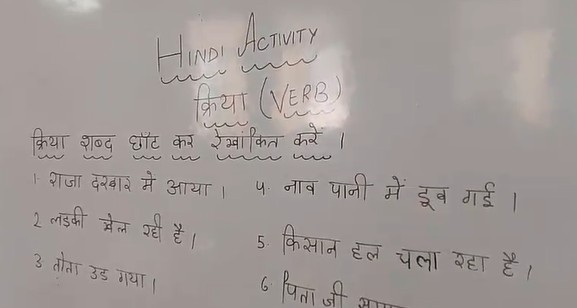 HINDI ACTIVITY
क्रिया (VERB)
क्रिया शब्द छाँट कर रेखांकित करें ।
1 राजा दरबार में आया ।
2 लड़की खेल रही है ।
3 तोता उड़ गया ।
4. नाव पानी में डूब गई ।
5. किसान हल चला रहा है ।
6. पिता जी